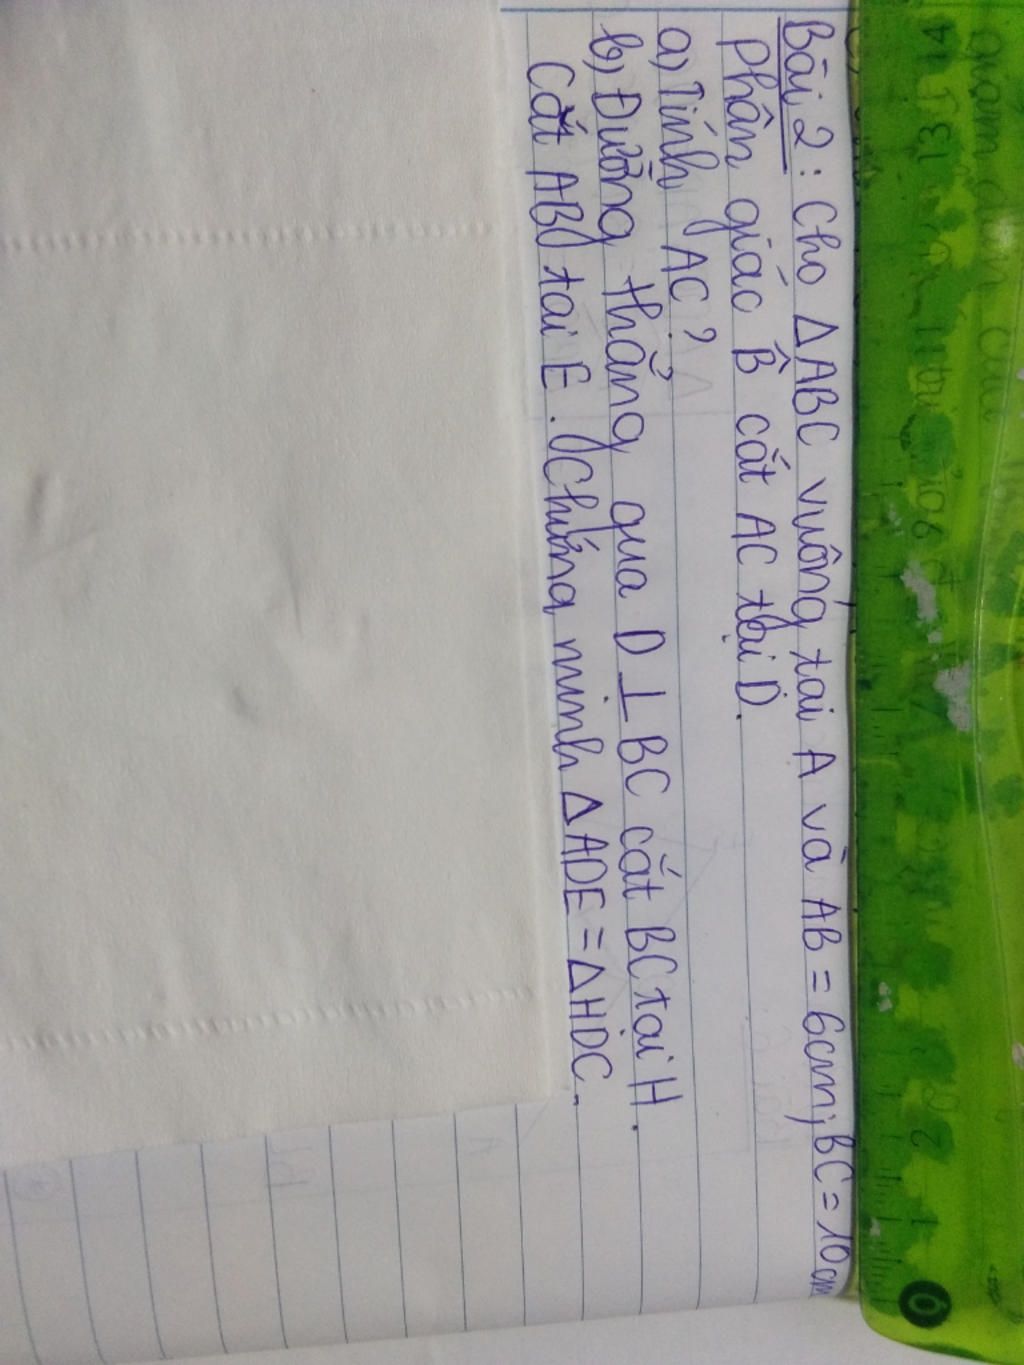 Bài 2: Cho ΔABC vuông tại A và AB = 6cm; BC = 10cm
Phân giác B̂ cắt AC tại D.
a) Tính AC?
b) Đường thẳng qua D ⊥ BC cắt BC tại H.
Cắt AB tại E. Chứng minh ΔADE = ΔHDC.
14
13
11
9
2
1
0